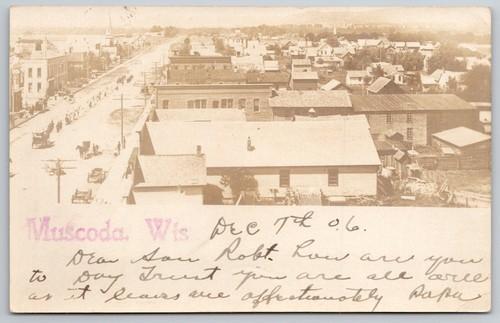 Muscoda, Wis
Dec 7th 06.
Dear Son Robt. how are you
to Day Trust you are all well
as it leaves me affectionately Papa